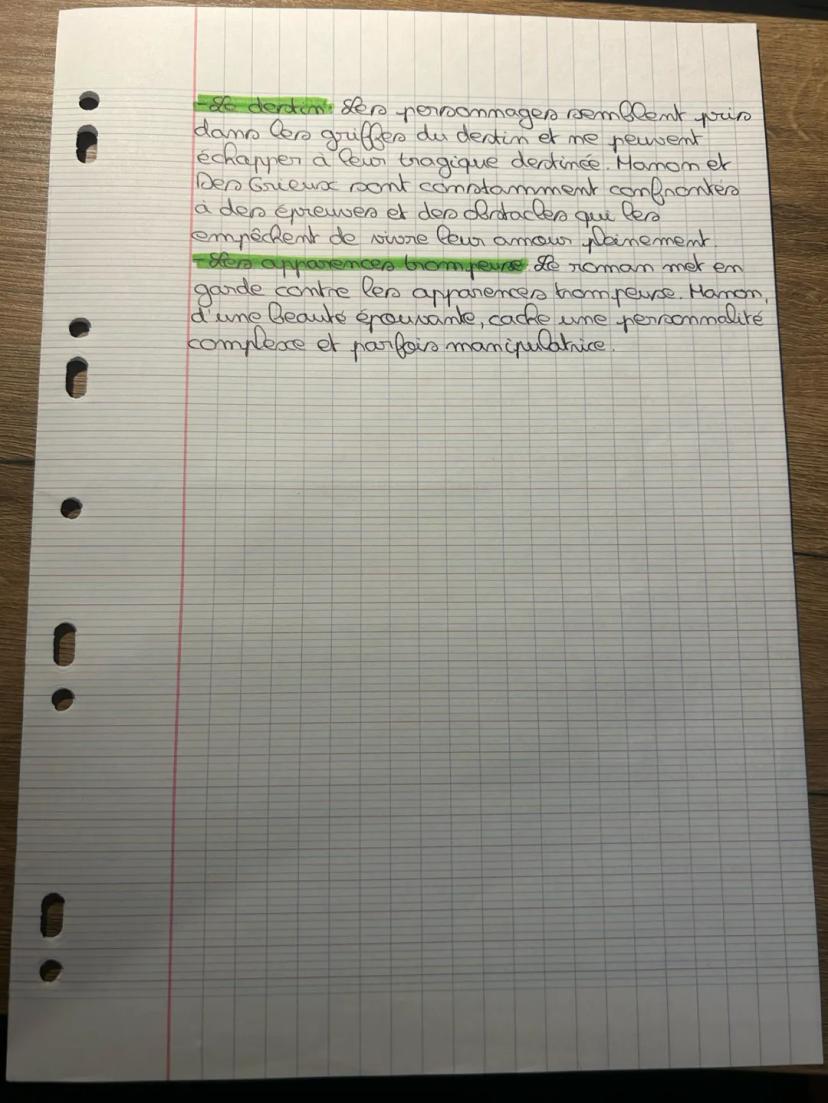 -Le destin. Les personnages semblent pris
dans les griffes du destin et ne peuvent
échapper à leur tragique destinée. Manon et
Des Grieux sont constamment confrontés
à des épreuves et des obstacles qui les
empêchent de vivre leur amour pleinement.
-Les apparences trompeuse. Le roman met en
garde contre les apparences trompeuse. Manon,
d'une beauté épouvante, cache une personnalité
complexe et parfois manipulatrice.